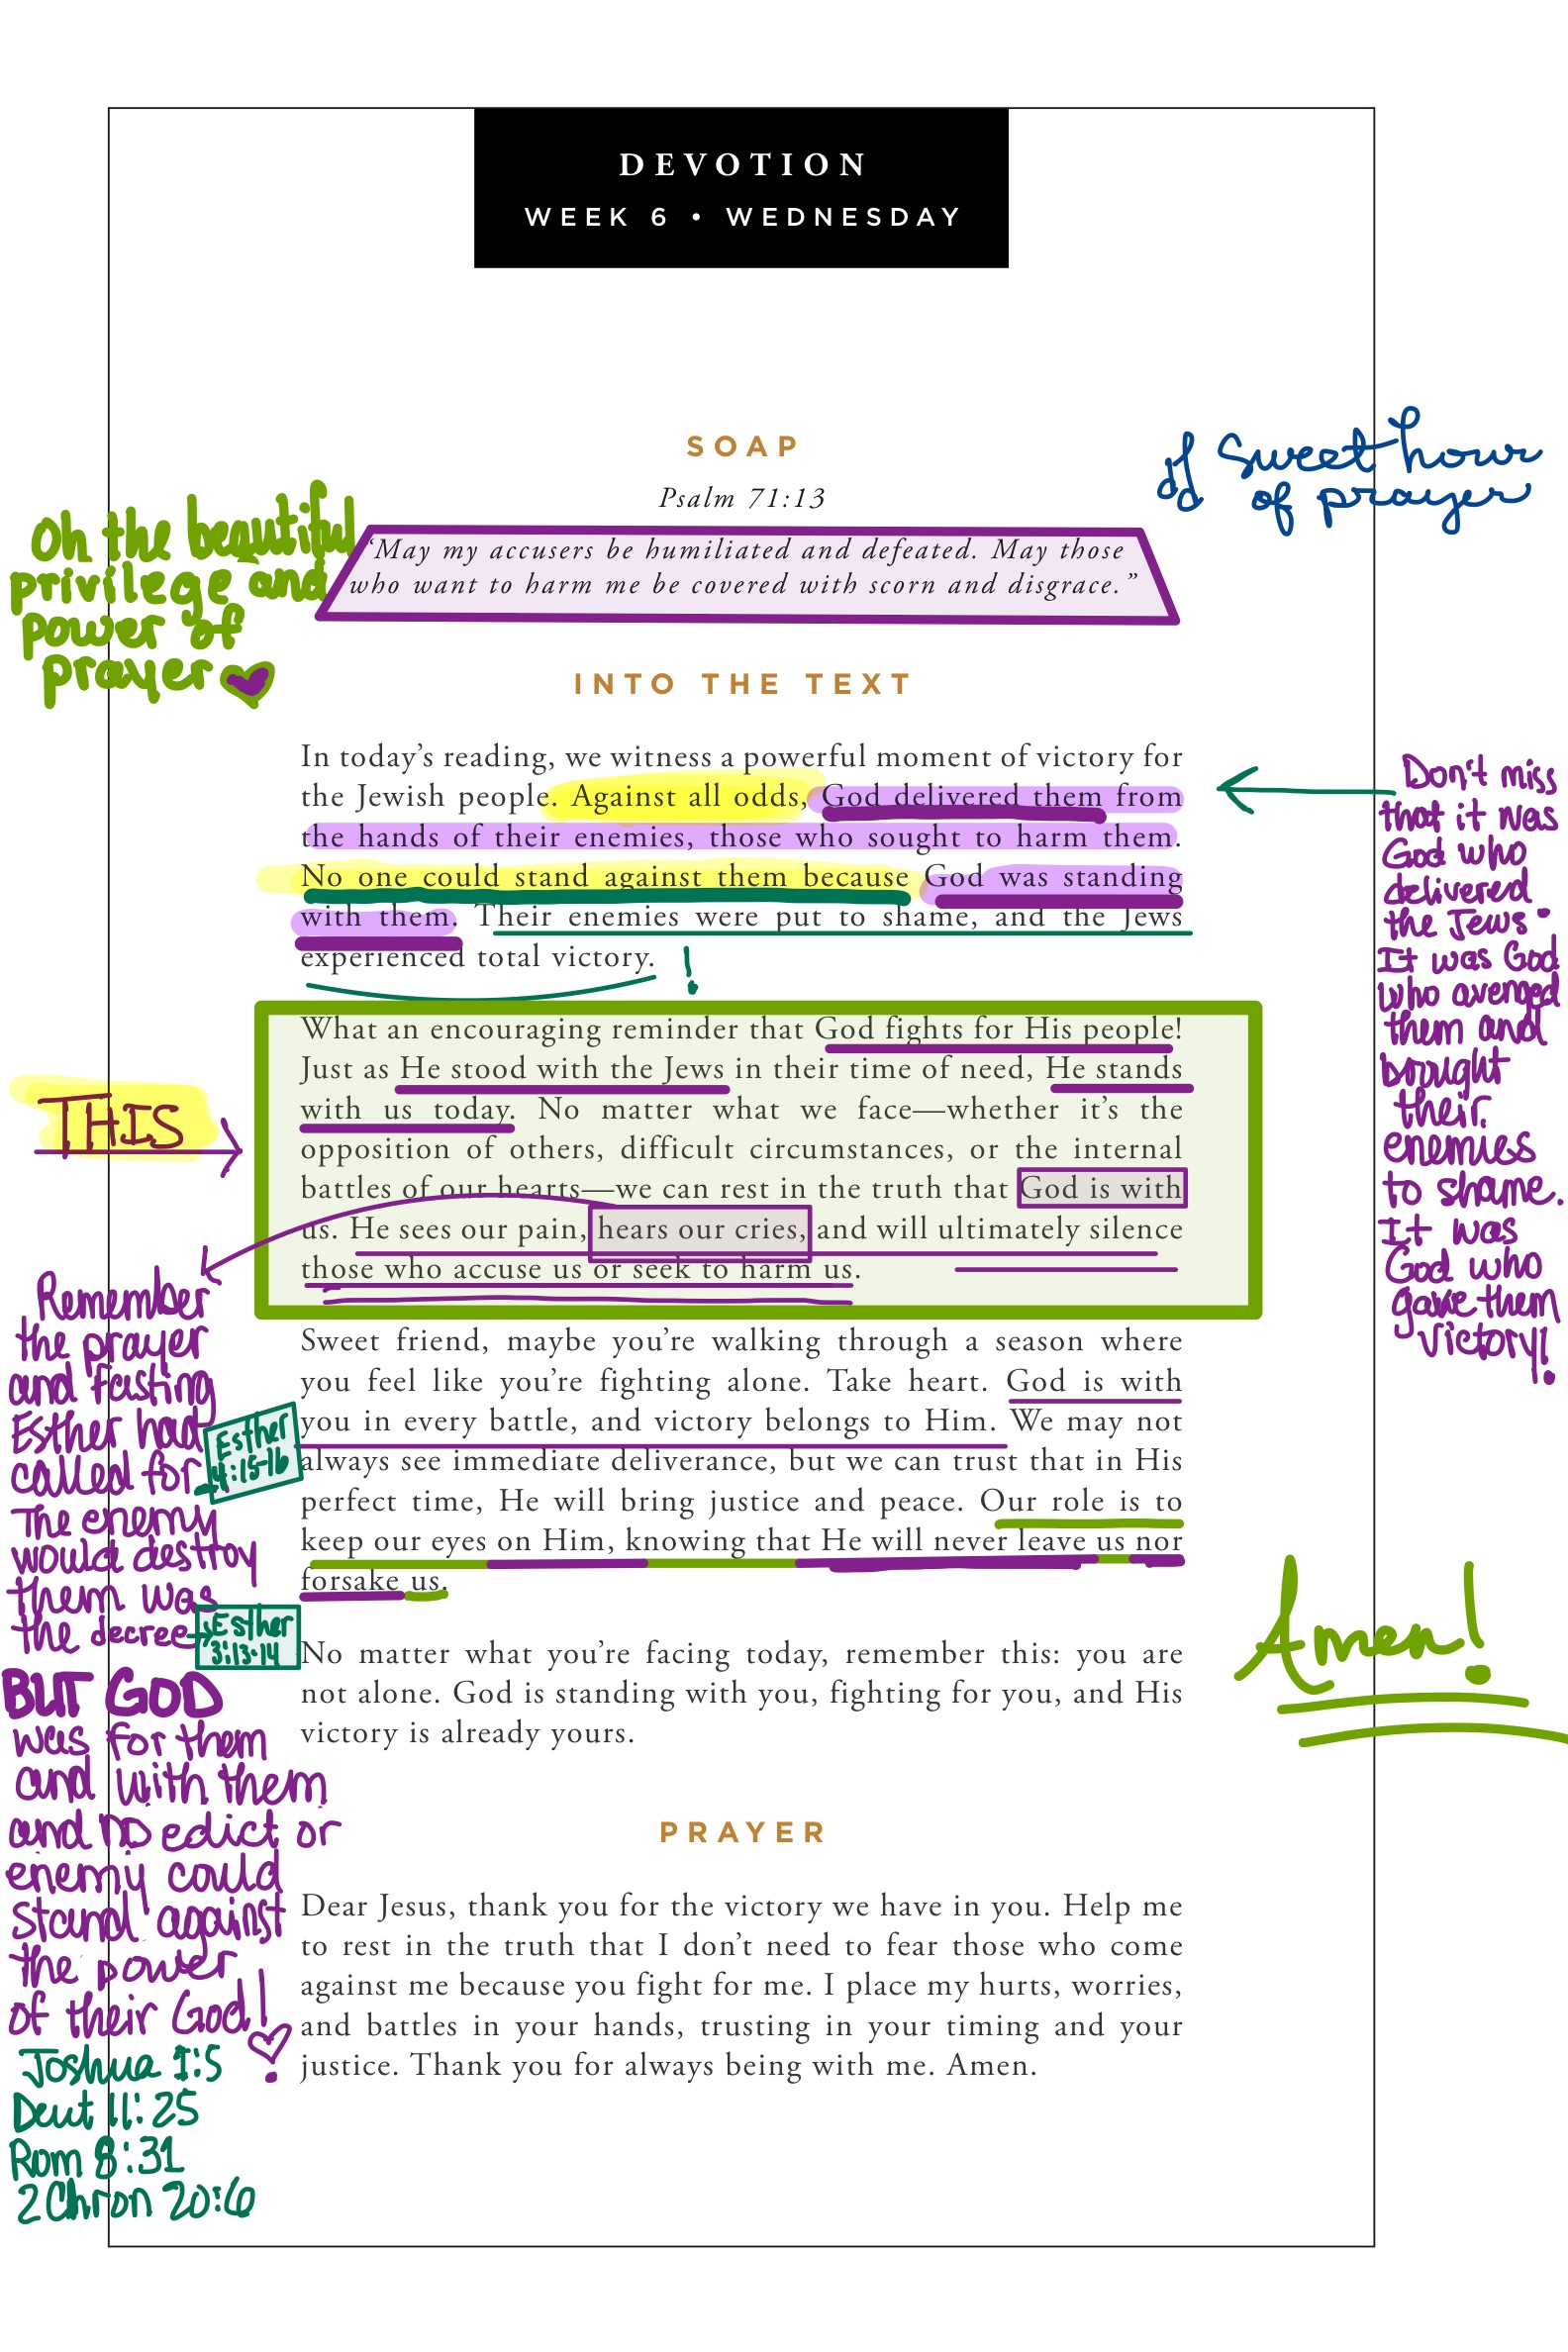 DEVOTION
WEEK 6 • WEDNESDAY
SOAP
Psalm 71:13
“May my accusers be humiliated and defeated. May those
who want to harm me be covered with scorn and disgrace.”
Sweet hour
of prayer
Oh the beautiful
privilege and
power of
prayer
INTO THE TEXT
In today’s reading, we witness a powerful moment of victory for
the Jewish people. Against all odds, God delivered them from
the hands of their enemies, those who sought to harm them.
No one could stand against them because God was standing
with them. Their enemies were put to shame, and the Jews
experienced total victory. !
Don't miss
that it was
God who
delivered
the Jews.
It was God
who avenged
them and
brought
their
enemies
to shame.
It was
God who
gave them
victory!
THIS
What an encouraging reminder that God fights for His people!
Just as He stood with the Jews in their time of need, He stands
with us today. No matter what we face—whether it’s the
opposition of others, difficult circumstances, or the internal
battles of our hearts—we can rest in the truth that God is with
us. He sees our pain, hears our cries, and will ultimately silence
those who accuse us or seek to harm us.
Sweet friend, maybe you’re walking through a season where
you feel like you’re fighting alone. Take heart. God is with
you in every battle, and victory belongs to Him. We may not
always see immediate deliverance, but we can trust that in His
perfect time, He will bring justice and peace. Our role is to
keep our eyes on Him, knowing that He will never leave us nor
forsake us.
No matter what you’re facing today, remember this: you are
not alone. God is standing with you, fighting for you, and His
victory is already yours.
Amen!
Remember
the prayer
and fasting
Esther had
called for
Esther
4:15-16
The enemy
would destroy
them was
the decree
Esther
3:13-14
BUT GOD
was for them
and with them
and NO edict or
enemy could
stand against
the power
of their God!
Joshua 1:5
Deut 11:25
Rom 8:31
2 Chron 20:6
PRAYER
Dear Jesus, thank you for the victory we have in you. Help me
to rest in the truth that I don’t need to fear those who come
against me because you fight for me. I place my hurts, worries,
and battles in your hands, trusting in your timing and your
justice. Thank you for always being with me. Amen.